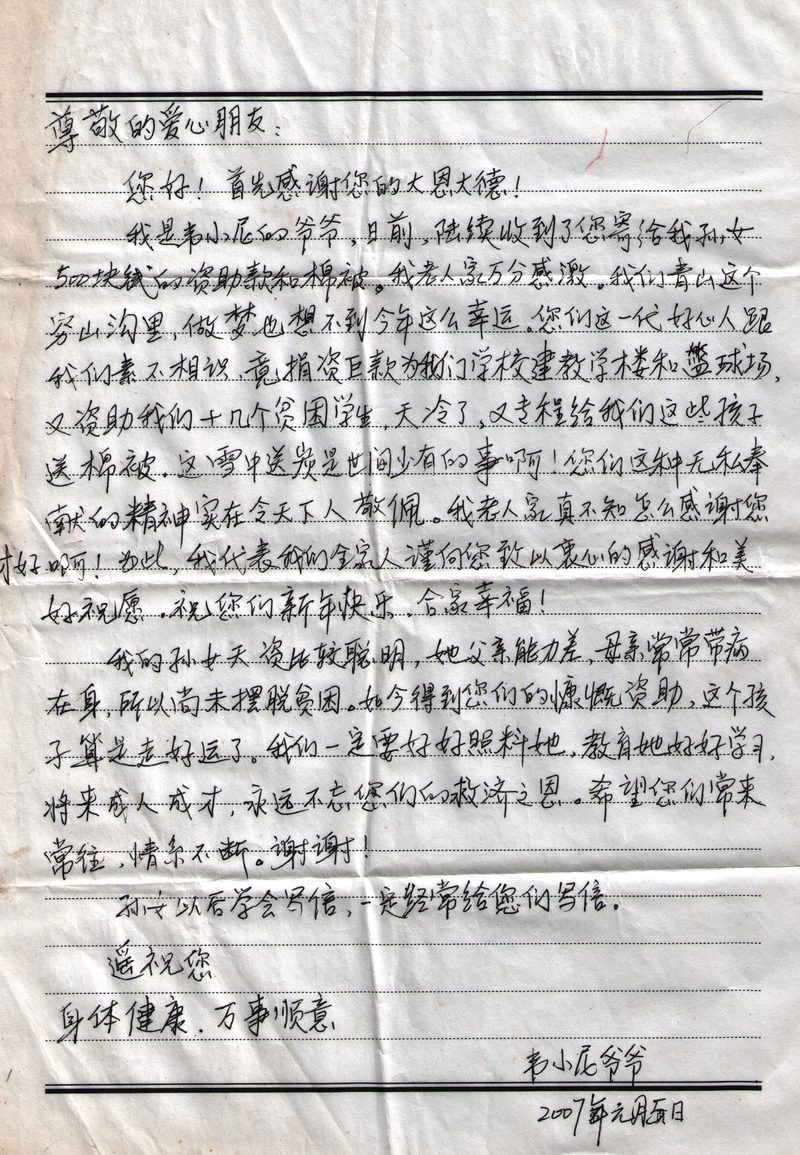 尊敬的爱心朋友：
您好！首先感谢您的大恩大德！
我是韦小尼的爷爷，日前，陆续收到了您寄给我孙女
500块钱的资助款和棉被。我老人家万分感激。我们青山这个
穷山沟里，做梦也想不到今年这么幸运。您们这一代好心人跟
我们素不相识，竟捐资巨款为我们学校建教学楼和篮球场，
又资助我们十几个贫困学生，天冷了，又专程给我们这些孩子
送棉被，这雪中送炭是世间少有的事啊！您们这种无私奉
献的精神实在令天下人敬佩。我老人家真不知怎么感谢您
才好啊！为此，我代表我们全家人谨向您致以衷心的感谢和美
好祝愿。祝您们新年快乐，合家幸福！
我的孙女天资比较聪明，她父亲能力差，母亲常常带病
在身，所以尚未摆脱贫困。如今得到您们的慷慨资助，这个孩
子算是走好运了。我们一定要好好照料她，教育她好好学习，
将来成人成才，永远不忘您们的救济之恩。希望您们常来
常往，情系不断。谢谢！
孙女以后学会写信，一定经常给您们写信。
遥祝您
身体健康．万事顺意
韦小尼爷爷
2007年元月5日